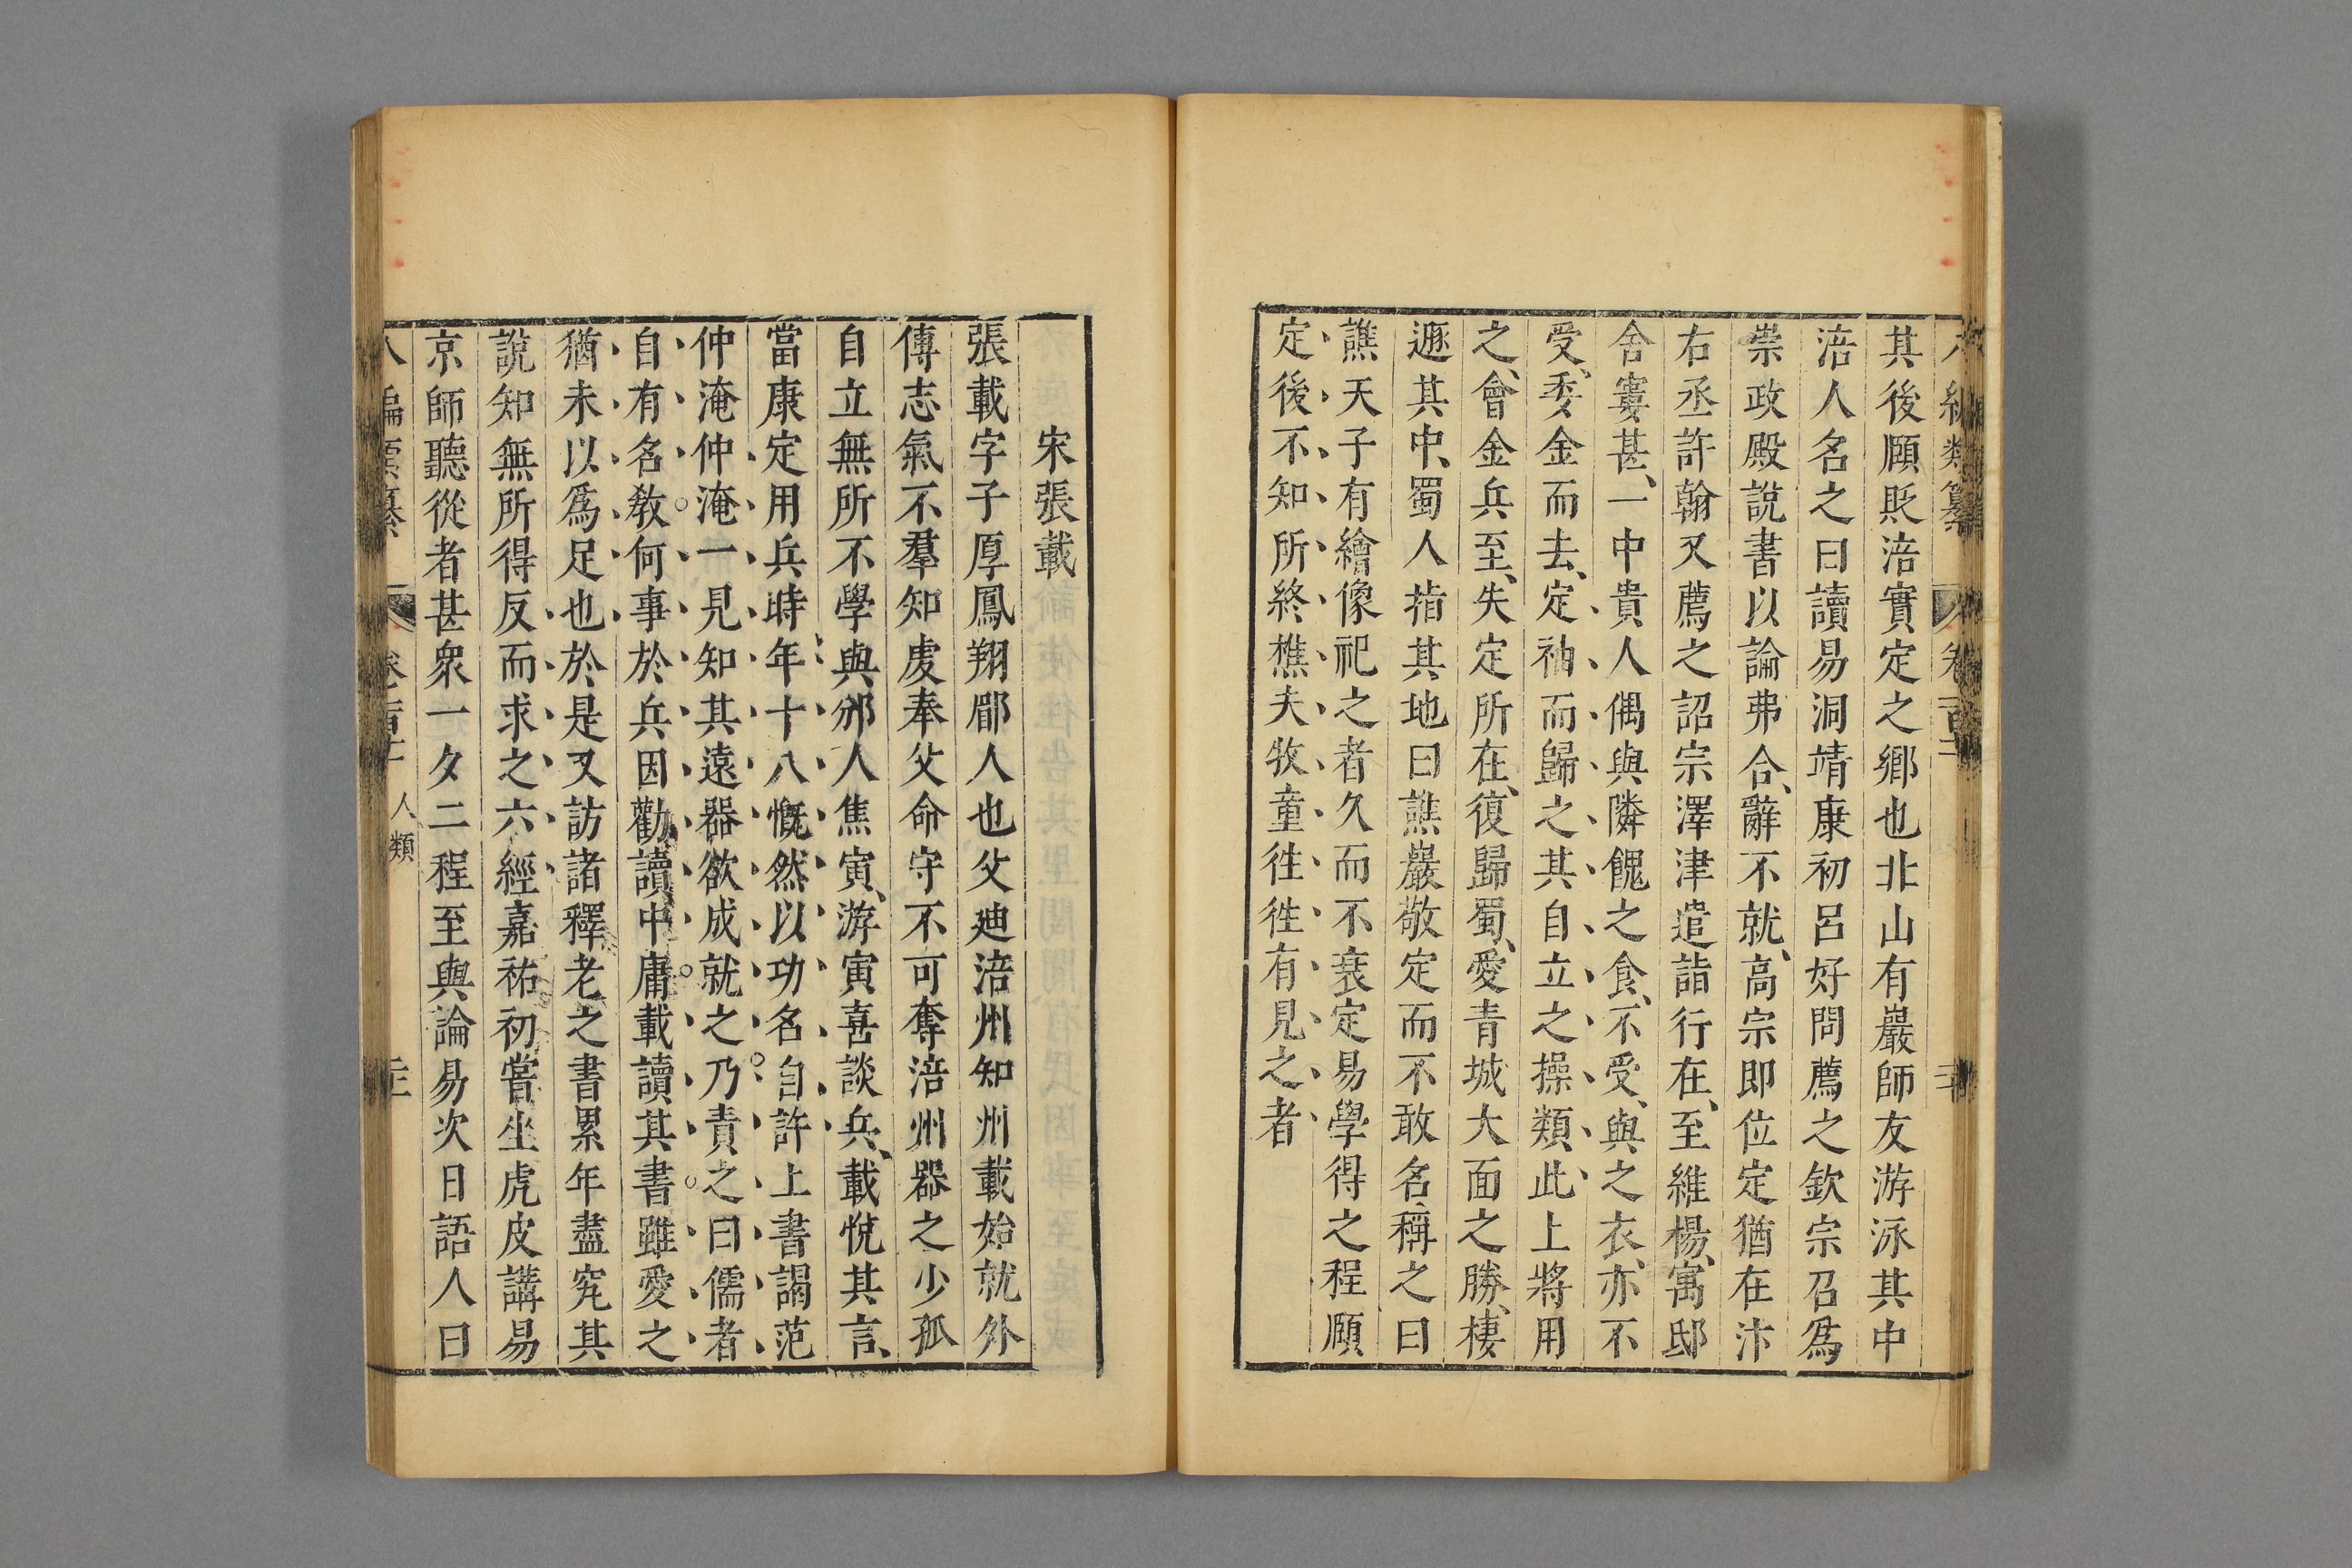 八編類纂 卷一百十
其後頤貶涪實定之鄉也北山有巖師友游泳其中
涪人名之曰讀易洞靖康初呂好問薦之欽宗召爲
崇政殿說書以論弗合、辭不就、高宗即位定猶在汴
右丞許翰又薦之詔宗澤津遣詣行在、至維楊、寓邸
舍窶甚、一中貴人偶與隣餽之食、不受、與之衣、亦不
受、委金而去、定袖而歸之其自立之操類此上將用
之、會金兵至、失定所在、復歸蜀、愛青城大面之勝、棲
遯其中、蜀人指其地曰譙巖敬定而不敢名、稱之曰
譙天子有繪像祀之者久而不衰定易學得之程頤
定後不知所終樵夫牧童徃徃有見之者
宋張載
張載字子厚鳳翔郿人也父廸涪州知州載始就外
傳志氣不羣知虔奉父命守不可奪涪州器之少孤
自立無所不學與邠人焦寅、游寅喜談兵、載悅其言、
當康定用兵時年十八慨然以功名自許上書謁范
仲淹仲淹一見知其遠器欲成就之乃責之曰儒者
自有名敎何事於兵因勸讀中庸載讀其書雖愛之
猶未以爲足也於是又訪諸釋老之書累年盡究其
說知無所得反而求之六經嘉祐初嘗坐虎皮講易
京師聽從者甚衆一夕二程至與論易次日語人曰
人類